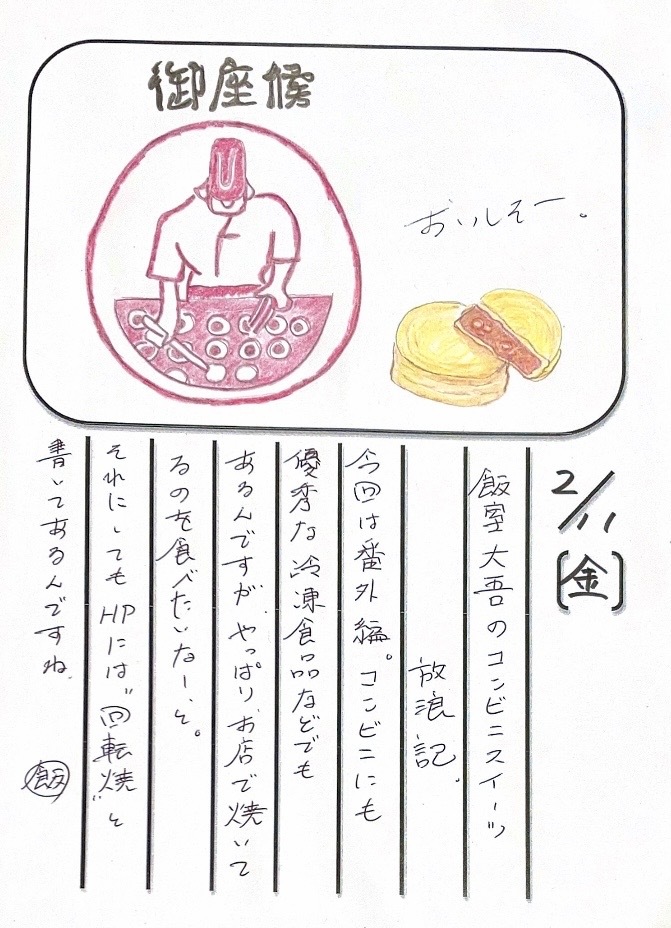 御座候
おいしそー。
2/11
[金]
飯室大吾のコンビニスイーツ
放浪記。
今回は番外編。コンビニにも
優秀な冷凍食品などでも
あるんですが、やっぱりお店で焼いて
るのを食べたいなー、と。
それにしてもHPには"回転焼"と
書いてあるんですね。
飯